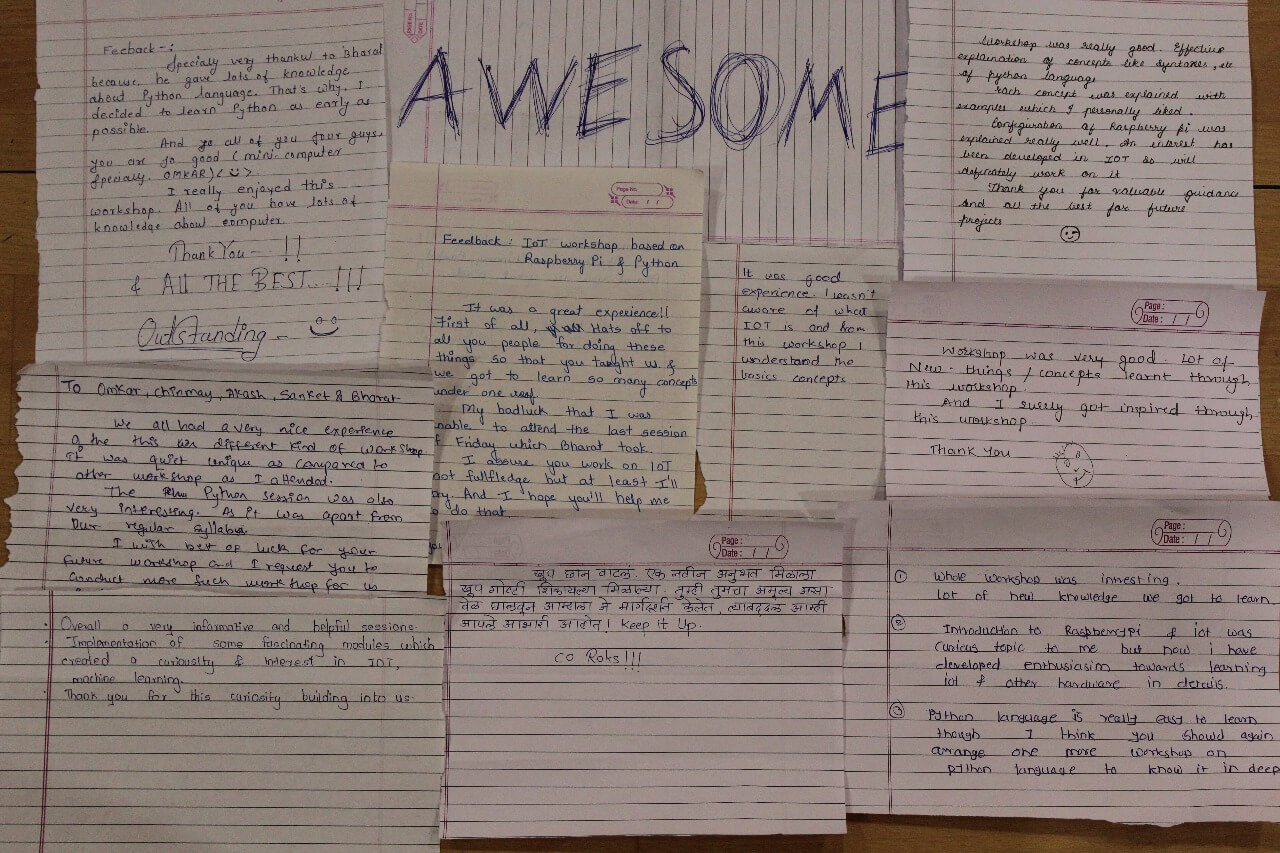 Feeback -:
Specialy very thankw to Bharat
because he gave lots of knowledge
about Python language. That's why, I
decided to learn Python as early as
possible.
And all of you four guys,
you are so good (mini computer
specialy. OMKAR) <☺>.
I really enjoyed this
workshop. All of you have lots of
knowledge about computer.
Thank You - !!
& ALL THE BEST...!!!
Outstanding -
AWESOME
Workshop was really good. Effective
explaination of concepts like syntaxes, etc
of python language
Each concept was explained with
examples which I personally liked.
Configuration of Raspberry pi was
explained really well. An interest has
been developed in IOT so will
definately work on it
Thank you for valuable guidance
And all the best for future
projects
Page No.
Date : / /
Feedback : IoT workshop based on
Raspberry Pi & Python
It was a great experience!!
First of all, Hats off to
all you people for doing these
things so that you taught us &
we got to learn so many concepts
under one roof
My badluck that I was
nable to attend the last session
f Friday which Bharat took.
I assure you work on IoT
not fullfledge but at least I'll
ay. And I hope you'll help me
o do that
It was good
experience. I wasn't
aware of what
IOT is and from
this workshop I
understand the
basics concepts
Page :
Date : / /
Workshop was very good. Lot of
New things / concepts learnt through
this workshop.
And I surely got inspired through
this workshop.
Thank You
To Omkar, Chinmay, Akash, Sanket & Bharat
We all had a very nice experience
the this was different kind of workshop
It was quiet unique as compared to
other workshop as I attended.
The Python session was also
very interesting. As it was apart from
Our regular syllabus
I wish best of luck for your
future workshop and I request you to
conduct more such workshop for us
Overall a very informative and helpful sessions.
Implementation of some fascinating modules which
created a curiosity & interest in IOT,
machine learning.
Thank you for this curiosity building into us.
Page :
Date : / /
खुप छान वाटलं. एक नवीन अनुभव मिळाला
खुप गोष्टी शिकायला मिळाल्या. तुम्ही तुमचा अमूल्य असा
वेळ घालवून आम्हाला जे मार्गदर्शन केलेत, त्याबद्दल आम्ही
आपले आभारी आहोत! Keep It Up.
CO Roks!!!
Page :
Date : / /
① Whole workshop was intresting.
lot of new knowledge we got to learn
② Introduction to RaspberryPi & iot was
curious topic to me but now i have
developed enthusiasim towards learning
iot & other hardware in details.
③ Python language is really easy to learn
though I think you should again
arrange one more workshop on
python language to know it in deep